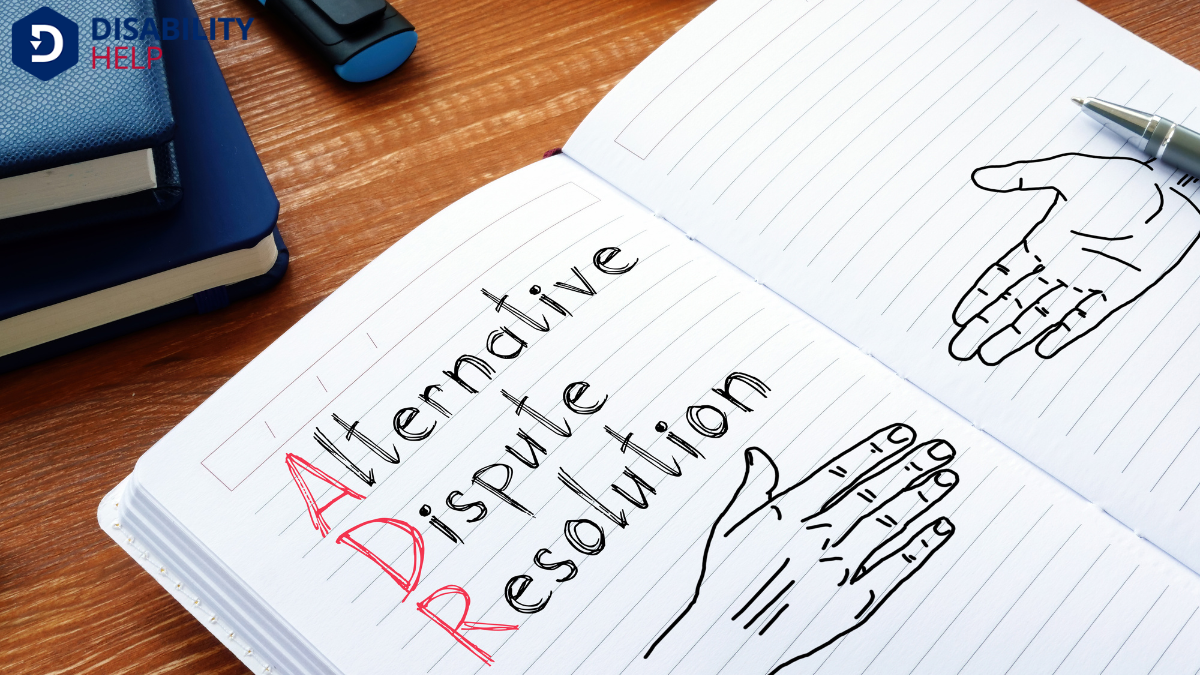 DISABILITY
HELP
Alternative
Dispute
Resolution